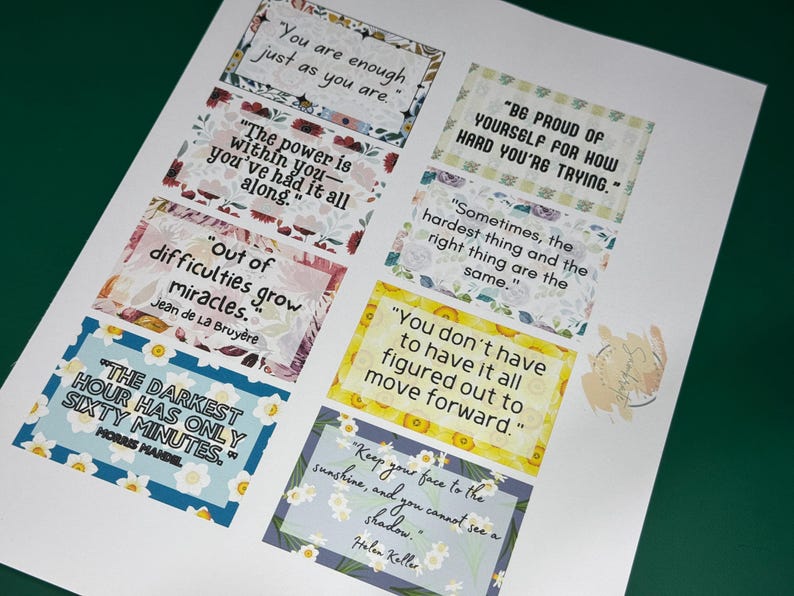 "You are enough
just as you are."
"The power is
within you—
you've had it all
along."
"Out of
difficulties grow
miracles."
Jean de La Bruyère
"THE DARKEST
HOUR HAS ONLY
SIXTY MINUTES."
MORRIS MANDEL
"BE PROUD OF
YOURSELF FOR HOW
HARD YOU'RE TRYING."
"Sometimes, the
hardest thing and the
right thing are the
same."
"You don't have
to have it all
figured out to
move forward."
"Keep your face to the
sunshine, and you cannot see a
shadow."
Helen Keller